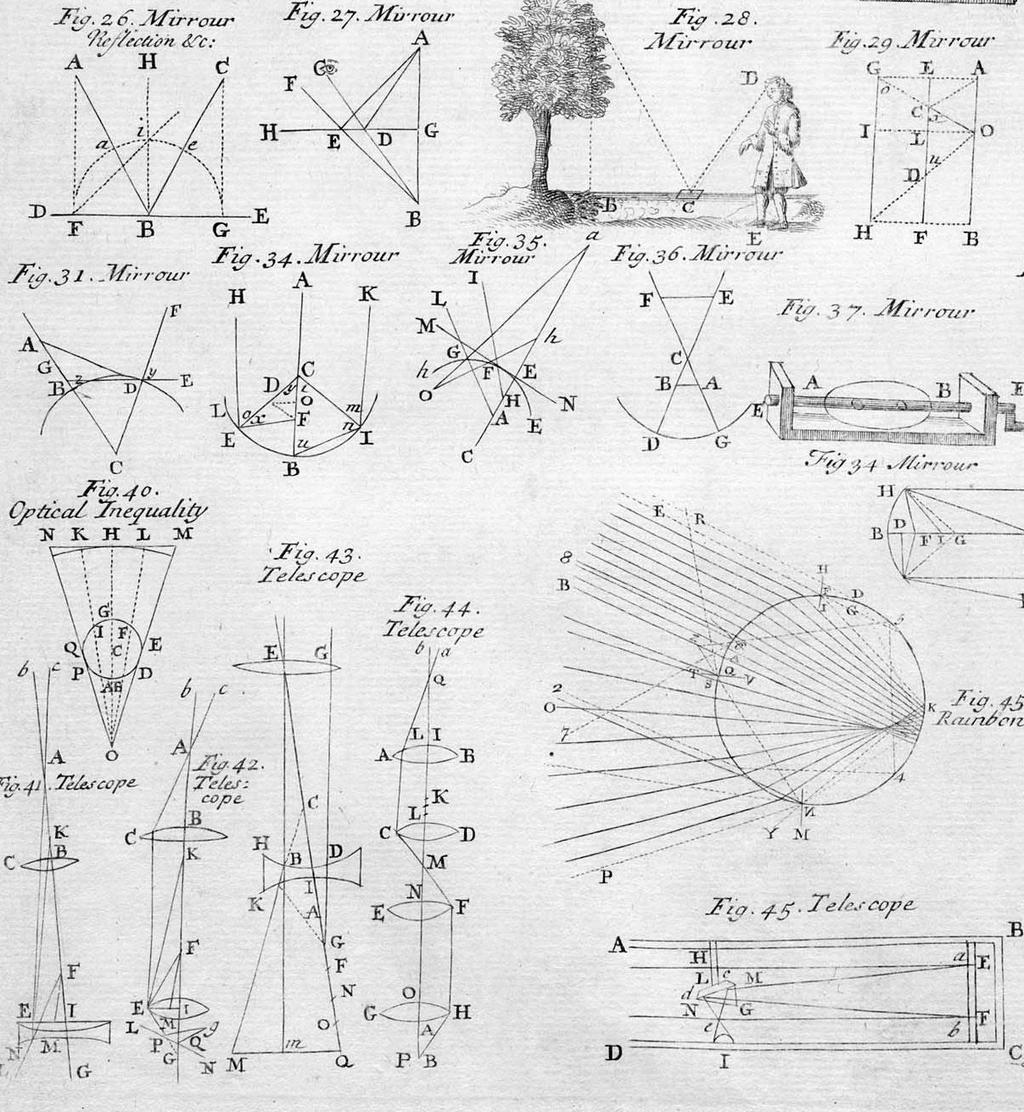 Fig. 26. Mirrour
Reflection &c:
A H C
i
a e
D F B G E
Fig. 27. Mirrour
A
G
F
H E D G
B
Fig. 28.
Mirrour
D
B C
E
Fig. 29. Mirrour
G E A
o
C x
I L O
u
n
H F B
Fig. 31. Mirrour
F
A
G
B z D y E
C
Fig. 34. Mirrour
H A K
C
D y i
O
L o x F m
E u n I
B
Fig. 35.
Mirrour
a
I
L
M
G h
h F E
O H N
A E
C
Fig. 36. Mirrour
F E
C
B A
D G
Fig. 37. Mirrour
A B
E
Fig 34 Mirrour
H
B D F I G
Fig. 40.
Optical Inequality
N K H L M
G
I F
Q C E
P D
A B
O
Fig. 43.
Telescope
E G
C
H B D
I
K A
G
F
N
O
M m Q
Fig. 44.
Telescope
b a
Q
L I
A B
K
L
C D
M
N
E F
O
G H
A
P B
E R
8
B
H
F D
I G
T S Q V
2
O
7
K
Fig. 45
Rainbow
4
N
Y M
P
b c
A
Fig. 41. Telescope
K
C B
F
E I
N M
G
b c
A
Fig. 42.
Teles=
cope
B
C
K
F
E I
L M
P Q g
G N
Fig. 45. Telescope
A B
H a E
L c M
d
N G
e b F
D I C